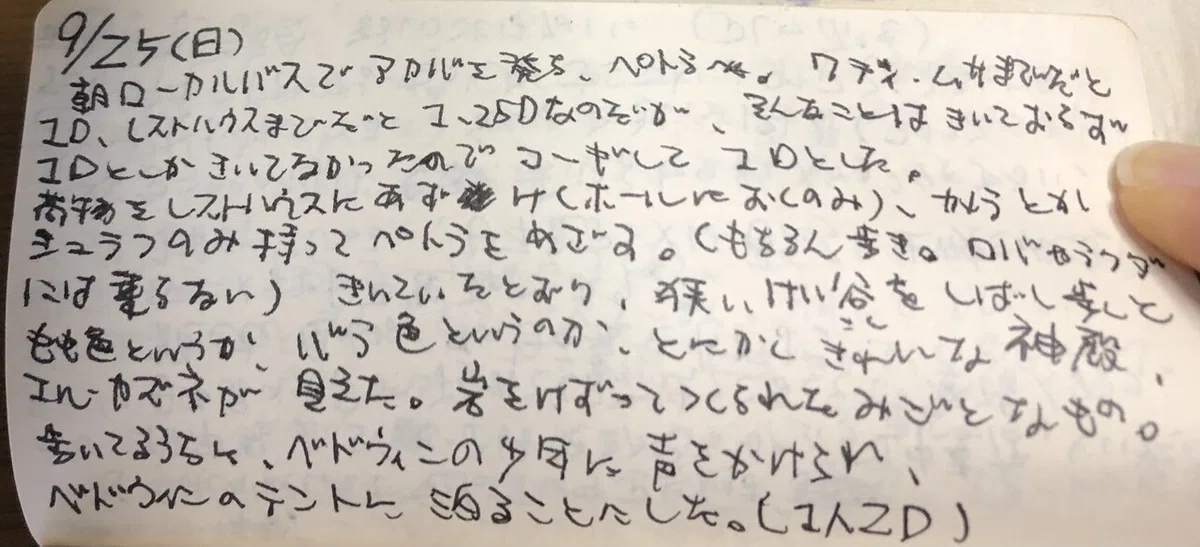 9/25(日)
朝ローカルバスでアカバを発ち、ペトラへ。ワディ・ムサまでだと
1D、レストハウスまでだと1.25Dなのだが、そんなことはきいておらず
1Dとしかきいてなかったのでコーギして1Dとした。
荷物をレストハウスにあずけ(ホールにおくのみ)、カメラとか
シュラフのみ持ってペトラをめざす。(もちろん歩き。ロバやラクダ
には乗らない)きいていたとおり、狭いけい谷をしばし歩くと
もも色というか、バラ色というのか、とにかくきれいな神殿、
エル・カズネが見えた。岩をけずってつくられたみごとなもの。
歩いてるうちに、ベドウィンの少年に声をかけられ、
ベドウィンのテントに泊ることにした。(1人2D)